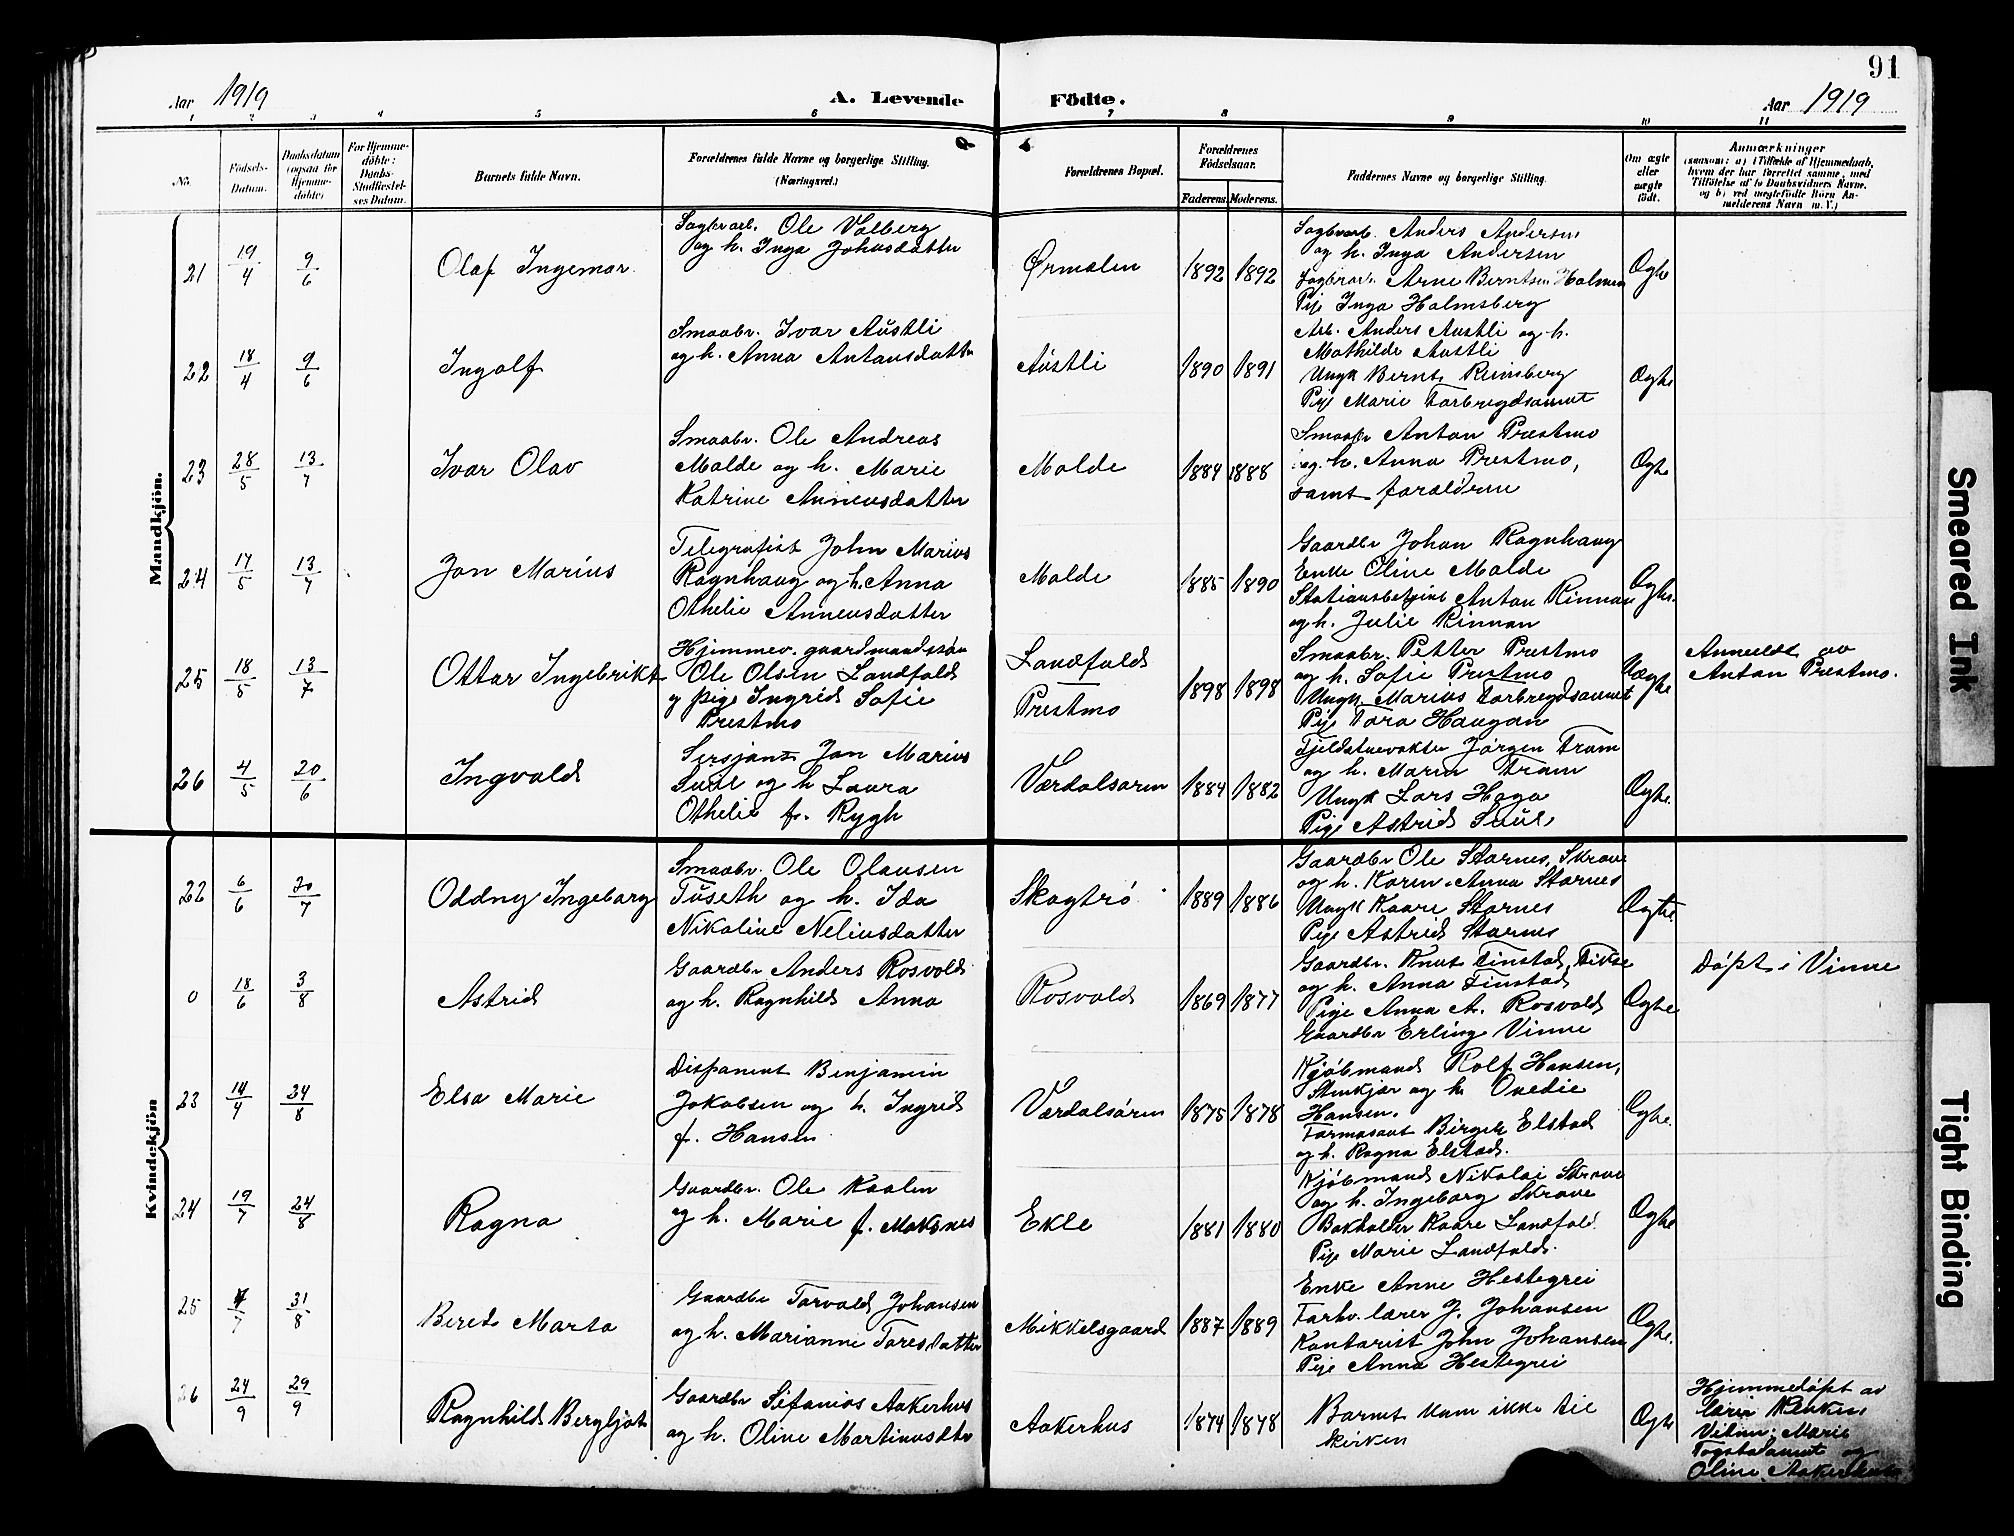 91
Aar 1919
A. Levende Födte.
Aar 1919
1 2 3 4 5 6 7 8 9 10 11
No.
Födsels-Datum.
Daabsdatum (ogsaa for Hjemme-döbte)
For Hjemme-döbte: Daabs-Stadfæstel-ses Datum.
Barnets fulde Navn.
Forældrenes fulde Navne og borgerlige Stilling. (Næringsvei.)
Forældrenes Bopæl.
Forældrenes Födselsaar.
Faderens. Moderens.
Faddernes Navne og borgerlige Stilling.
Om ægte eller uægte födt.
Anmærkninger
(saasom: a) i Tilfælde af Hjemmedaab, hvem der har forrettet samme, med Tilföielse af to Daabsvidners Navne, og b) ved uægtefödte Börn An-melderens Navn m. V.)
Mandkjön.
21 19/4 9/6 Olaf Ingemar
Sagbrarb. Ole Valberg
og h. Inga Johnsdatter
Ørmelen 1892 1892
Sagbrarb. Anders Andersen
og h. Inga Andersen
Sagbrarb. Arne Berntsen Holmen
Pige Inga Holmsberg
Ægte
22 18/4 9/6 Ingolf
Smaabr. Ivar Austli
og h. Anna Antonsdatter
Austli 1890 1891
Arb. Anders Austli og h.
Mathilde Austli
Ungk Bernt Rimsberg
Pige Marie Forbregdsaunet
Ægte
23 28/5 13/7 Ivar Olav
Smaabr. Ole Andreas
Molde og h. Marie
Katrine Anneusdatter
Molde 1884 1888
Smaabr Anton Prestmo
og h. Anna Prestmo,
samt forældrene
Ægte
24 17/5 13/7 Jon Marius
Telegrafist John Marius
Ragnhaug og h. Anna
Othelie Anneusdatter
Molde 1885 1890
Gaardbr Johan Ragnhaug
Enke Oline Molde
Stationsbetjent Anton Rinnan
og h. Julie Rinnan
Ægte.
25 18/5 13/7 Ottar Ingebrikt
Hjemmev. gaardmandssøn
Ole Olsen Landfald
og pige Ingrid Sofie
Prestmo
Landfald
Prestmo
1898 1898
Smaabr. Petter Prestmo
og h. Sofie Prestmo
Ungk. Marius Forbregdsaunet
Pige Tora Haugan
Uægte
Anmeldt av
Anton Prestmo.
26 4/5 20/6 Ingvald
Sersjant Jon Marius
Suul og h Laura
Othelie f. Rygh
Værdalsøren 1884 1882
Fjeldstuevokter Jørgen Tram
og h. Maren Tram
Ungk Lars Haga
Pige Astrid Suul
Ægte.
Kvindekjön
22 6/6 20/7 Oddny Ingeborg
Smaabr. Ole Olausen
Tuseth og h. Ida
Nikoline Neliusdatter
Skogtrø 1889 1886
Gaardbr Ole Stornes, Skrove
og h. Karen Anna Stornes
Ungk Kaare Stornes
Pige Astrid Stornes
Ægte.
0 18/6 3/8 Astrid
Gaardbr Anders Rosvold
og h. Ragnhild Anna
Rosvold 1869 1877
Gaardbr. Knut Tinstad, Fikse
og h. Anna Tinstad
Pige Anna A. Rosvold
Gaardbr Erling Vinne
Ægte
Døpt i Vinne
23 14/4 24/8 Elsa Marie
Disponent Benjamin
Jakobsen og h. Ingrid
f. Hansen
Værdalsøren 1875 1878
Kjøbmand Rolf Hansen,
Stenkjær og h. Ovedie
Hansen.
Farmasøut Birger Elstad
og h. Ragna Elstad.
Ægte.
24 19/7 24/8 Ragna
Gaardbr. Ole Kaalen
og h. Marie f. Moksnes
Ekle 1881 1880
Kjøbmand Nikolai Skrove
og h. Ingeborg Skrove
Bokholder Kaare Landfald
Pige Marie Landfald.
Ægte
25 31/8 Beret Marta
Gaardbr Torvald Johansen
og h. Marianne Toresdatter
Mikkelsgaard 1887 1889
Enke Anne Hestegrei
Forhv. lærer J. Johansen
Kontorist John Johansen
Pige Anna Hestegrei
Ægte.
26 24/9 29/9 Ragnhild Bergljot
Gaardbr Sefanias Aakerhus
og h. Oline Martinusdtr
Aakerhus 1874 1878
Barnet kom ikke til
kirken
Ægte
Hjemmedøpt av
lærer
Vitner: Marie
og
Oline Aakerhus
Smeared Ink
Tight Binding